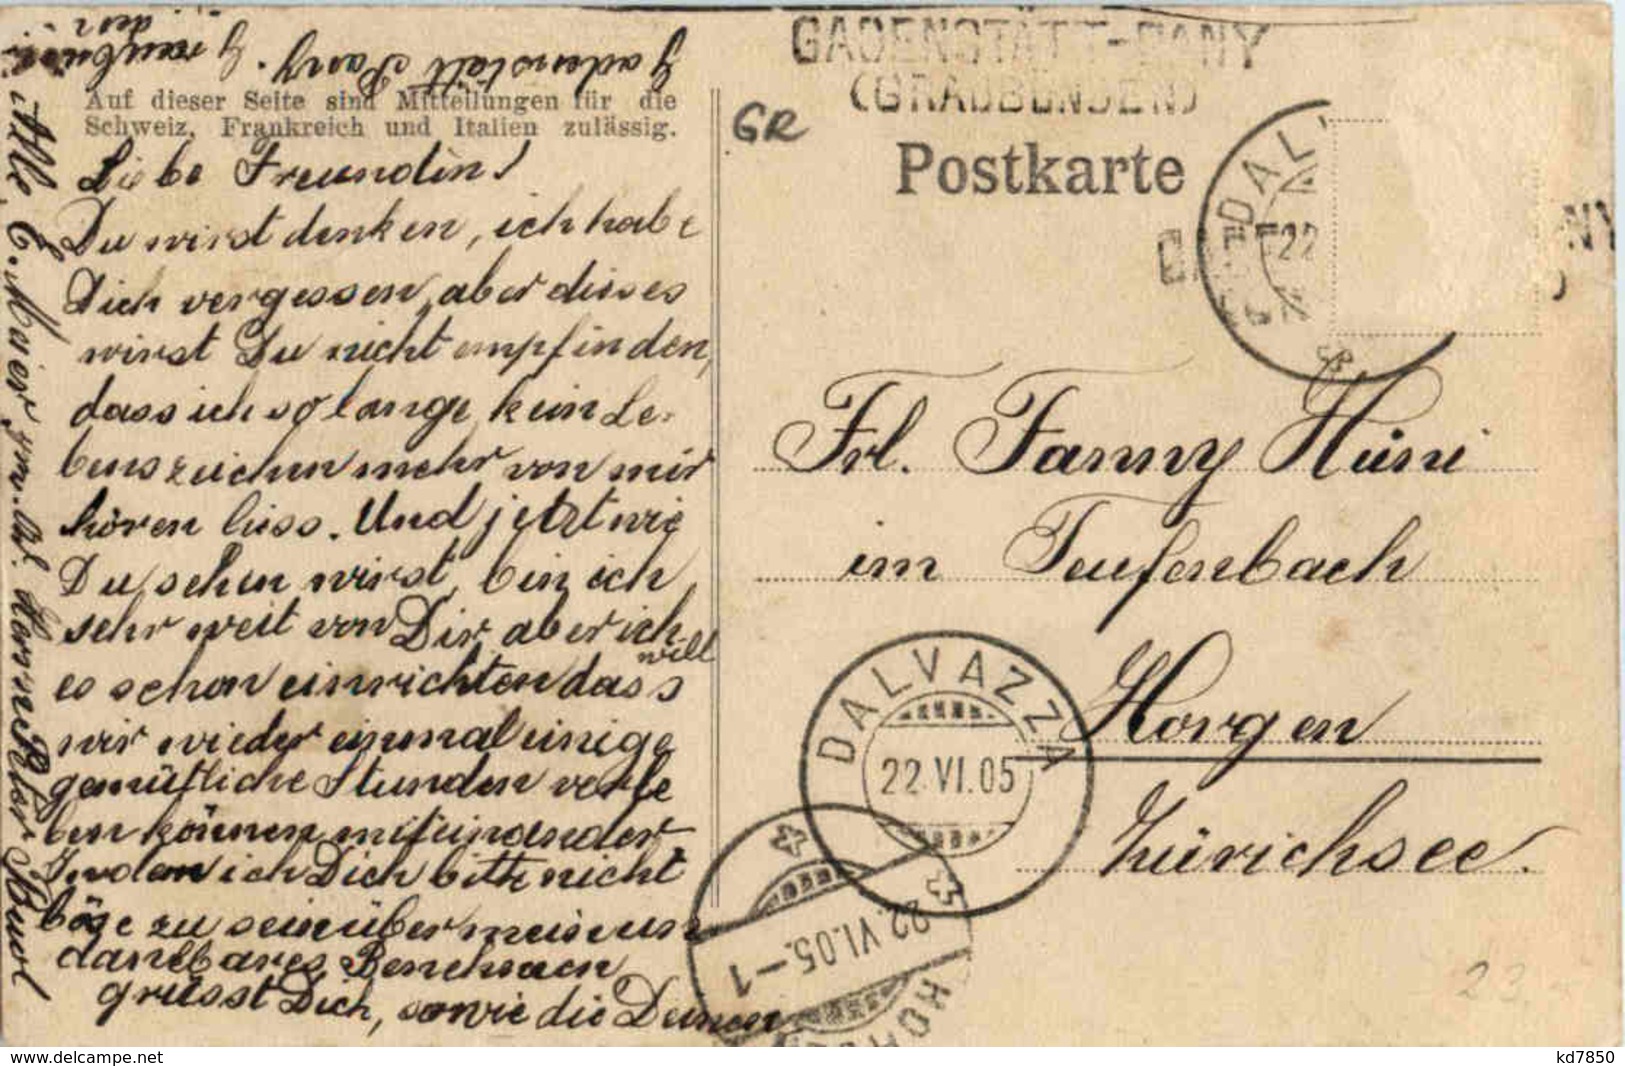 Gadenstätt Pany. Graubün-
den
Auf dieser Seite sind Mitteilungen für die
Schweiz, Frankreich und Italien zulässig.
Liebe Freundin!
Du wirst denken, ich habe
Dich vergessen, aber dieses
wirst Du nicht empfinden,
dass ich so lange kein Le-
benszeichen mehr von mir
hören liess. Und jetzt wie
Du sehen wirst, bin ich
sehr weit von Dir, aber ich
will
es schon einrichten dass
wir wieder einmal einige
gemütliche Stunden verle
ben können miteinander.
Indem ich Dich bitte nicht
böse zu sein über mein un
dankbares Benehmen
grüsst Dich, sowie die Deinen
Alle, E. Maier
GADENSTÄTT-PANY
(GRAUBÜNDEN)
GR
Postkarte
DALV
22
NY
GR
Frl. Fanny Hüni
im Teufenbach
Horgen
Zürichsee.
DALVAZZA
22.VI.05
22.VI.05.-1
HORGEN
23.-
www.delcampe.net
kd7850